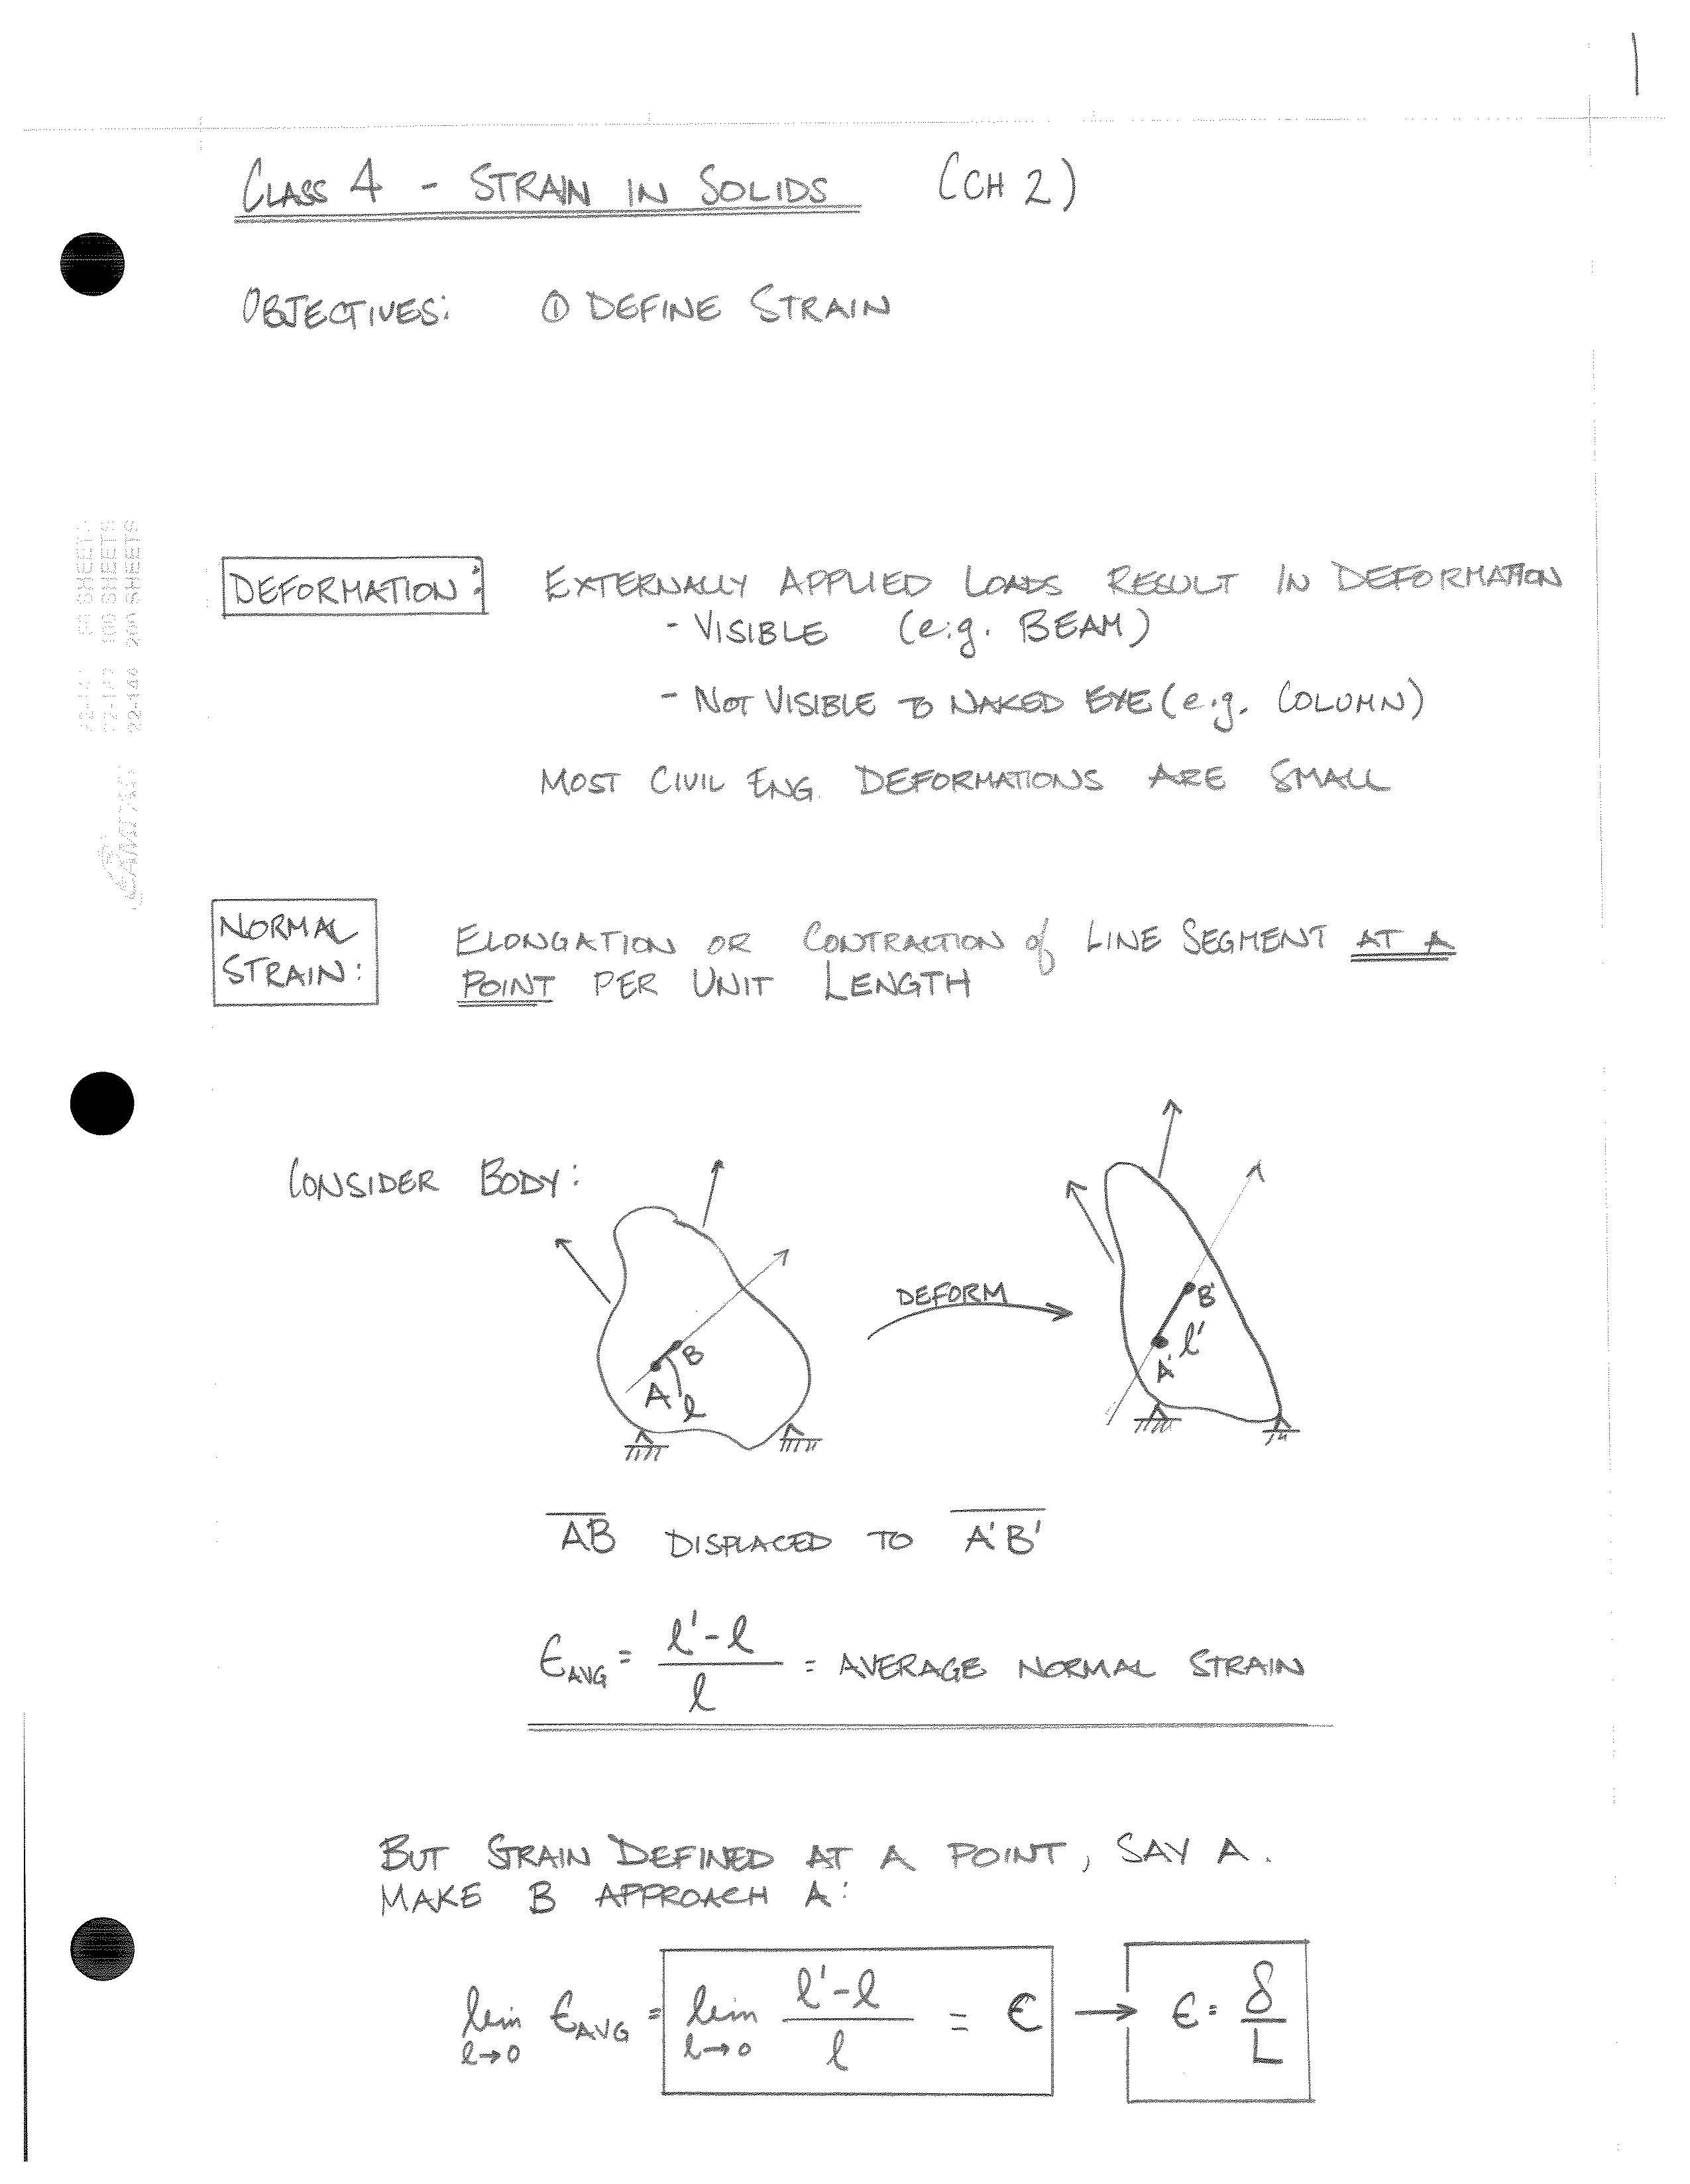 1
CLASS 4 - STRAIN IN SOLIDS (CH 2)
OBJECTIVES: ① DEFINE STRAIN
DEFORMATION: EXTERNALLY APPLIED LOADS RESULT IN DEFORMATION
- VISIBLE (e.g. BEAM)
- NOT VISIBLE TO NAKED EYE (e.g. COLUMN)
MOST CIVIL ENG. DEFORMATIONS ARE SMALL
NORMAL STRAIN: ELONGATION OR CONTRACTION of LINE SEGMENT AT A
POINT PER UNIT LENGTH
CONSIDER BODY:
A B l
DEFORM
A' B' l'
AB DISPLACED TO A'B'
ϵAVG = (l'-l)/l = AVERAGE NORMAL STRAIN
BUT STRAIN DEFINED AT A POINT, SAY A.
MAKE B APPROACH A:
lim l→0 ϵAVG = lim l→0 (l'-l)/l = ϵ → ϵ = δ/L
22-144 200 SHEETS